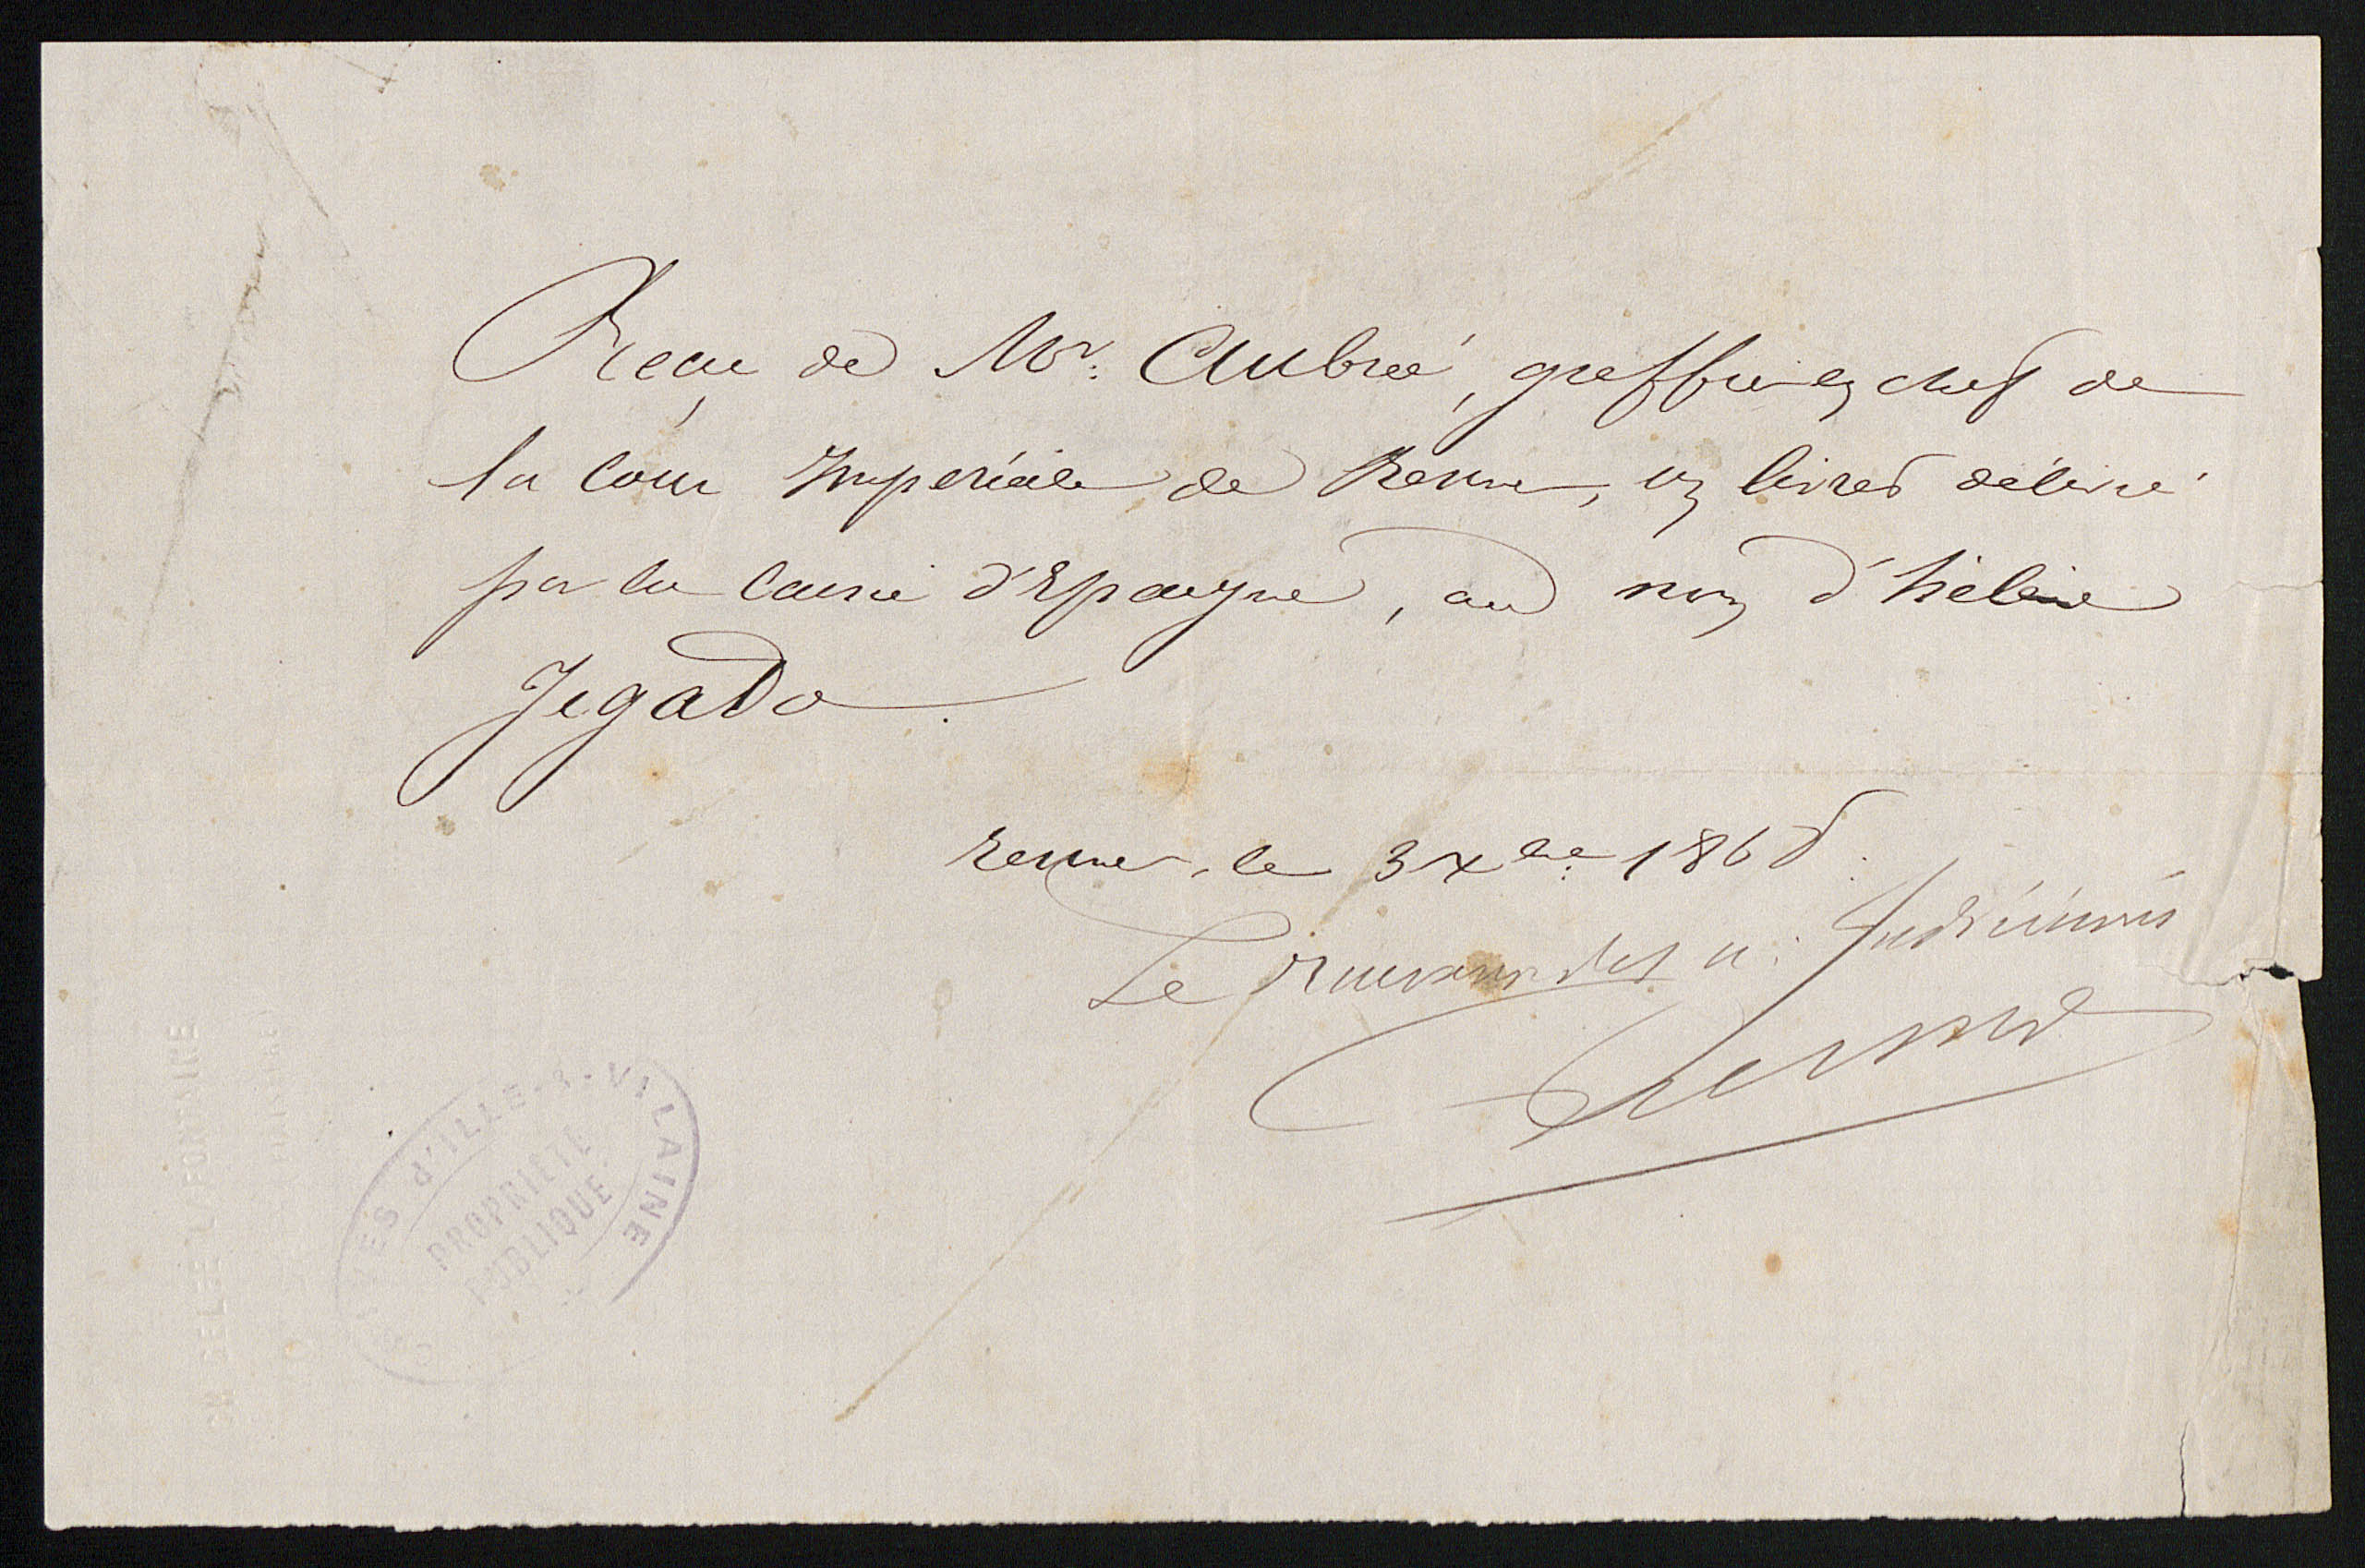 Reçu de Mr. Aubrée, greffier en chef de
la Cour Impériale de Rennes, un livret délivré
par la Caisse d'Epargne, au nom d'hélène
Jegado.
Rennes, le 3 Xbre 1865.
Le Receveur des
D'ILLE-&-VILAINE
PROPRIÉTÉ
PUBLIQUE